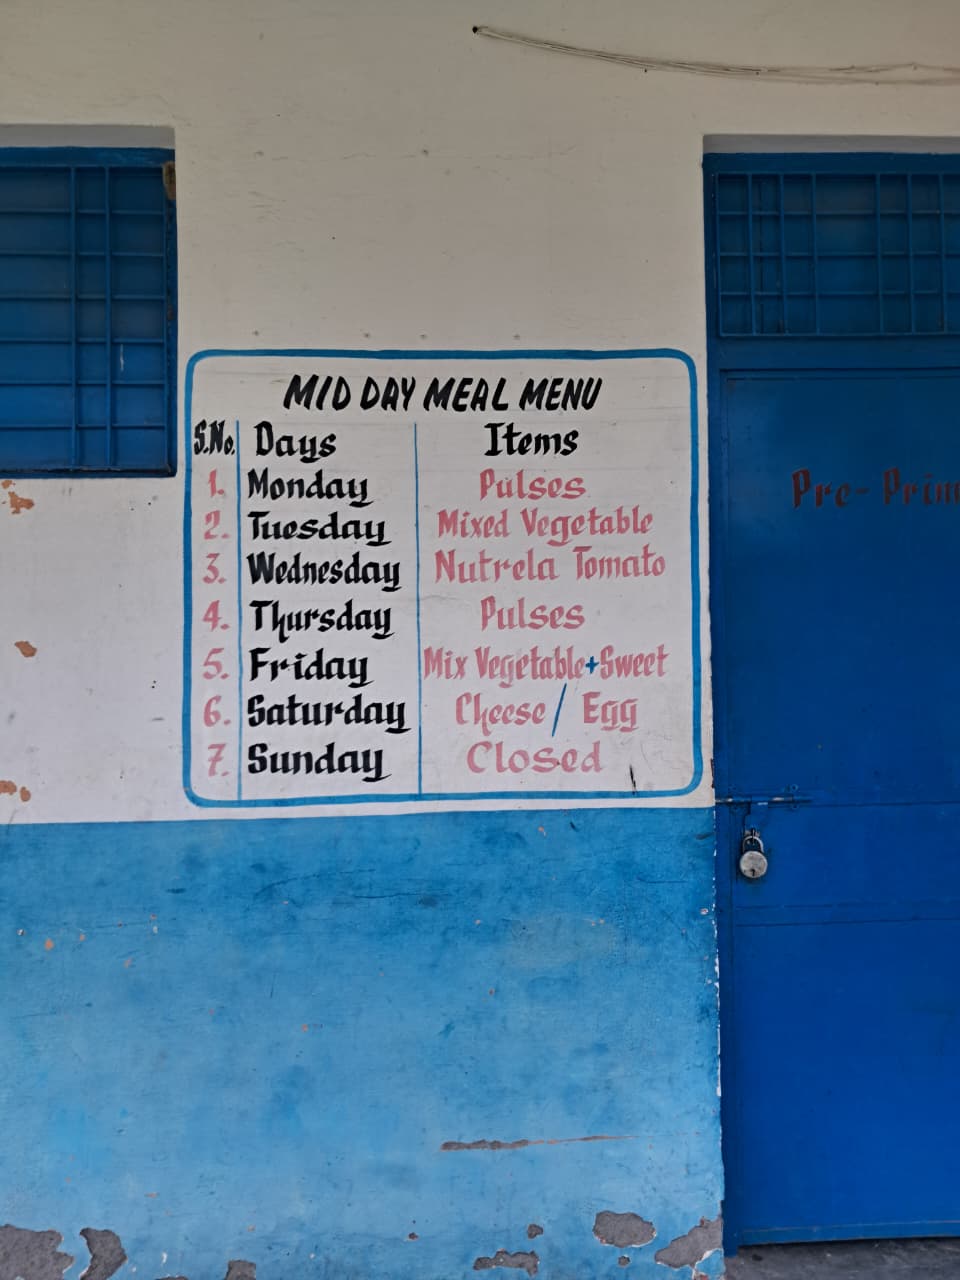 MID DAY MEAL MENU
S.No. Days Items
1. Monday Pulses
2. Tuesday Mixed Vegetable
3. Wednesday Nutrela Tomato
4. Thursday Pulses
5. Friday Mix Vegetable+Sweet
6. Saturday Cheese / Egg
7. Sunday Closed
Pre-